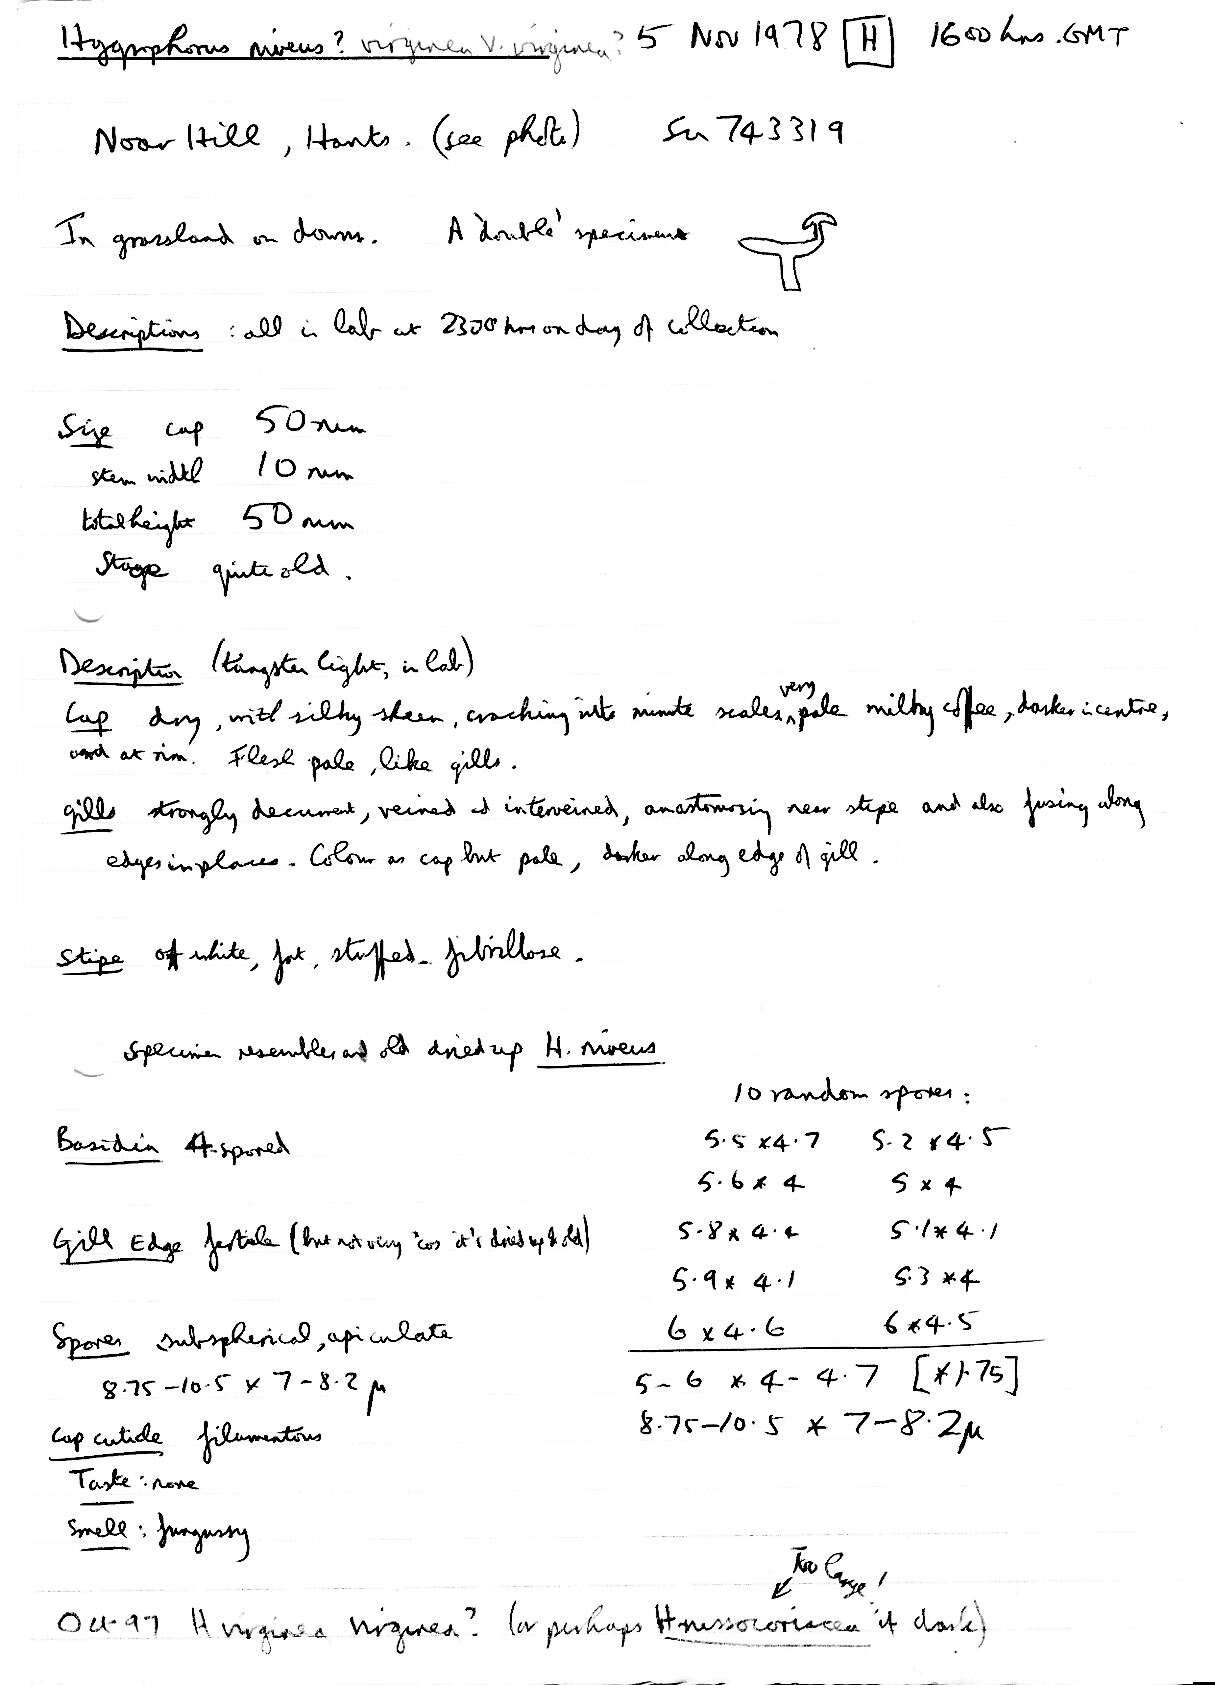 Hygrophorus niveus? virginea v. virginea? 5 Nov 1978 H 1600 hrs. GMT
Noar Hill, Hants. (see photo) SU 743319
In grassland on downs. A 'double' specimen
Descriptions : all in lab at 2300 hrs on day of collection
Size cap 50 mm
stem width 10 mm
total height 50 mm
Stage quite old.
Description (tungsten light, in lab)
very
Cap dry, with silky sheen, cracking into minute scales, pale milky coffee, darker in centre,
and at rim. Flesh pale, like gills.
gills strongly decurrent, veined & interveined, anastomosing near stipe and also fusing along
edges in places. Colour as cap but pale, darker along edge of gill.
Stipe off white, fat, stuffed - fibrillose.
Specimen resembles an old dried up H. niveus
10 random spores:
Basidia 4-spored
5.5 x 4.7 5.2 x 4.5
5.6 x 4 5 x 4
Gill Edge fertile (but not very 'cos it's dried up & old)
5.8 x 4.4 5.1 x 4.1
5.9 x 4.1 5.3 x 4
Spores subspherical, apiculate
6 x 4.6 6 x 4.5
8.75-10.5 x 7-8.2 µ
5-6 x 4-4.7 [x 1.75]
Cap cuticle filamentous
8.75-10.5 x 7-8.2µ
Taste : none
Smell : fungussy
Too large!
Oct 97 H virginea virginea? (or perhaps H russocoriacea if dark)